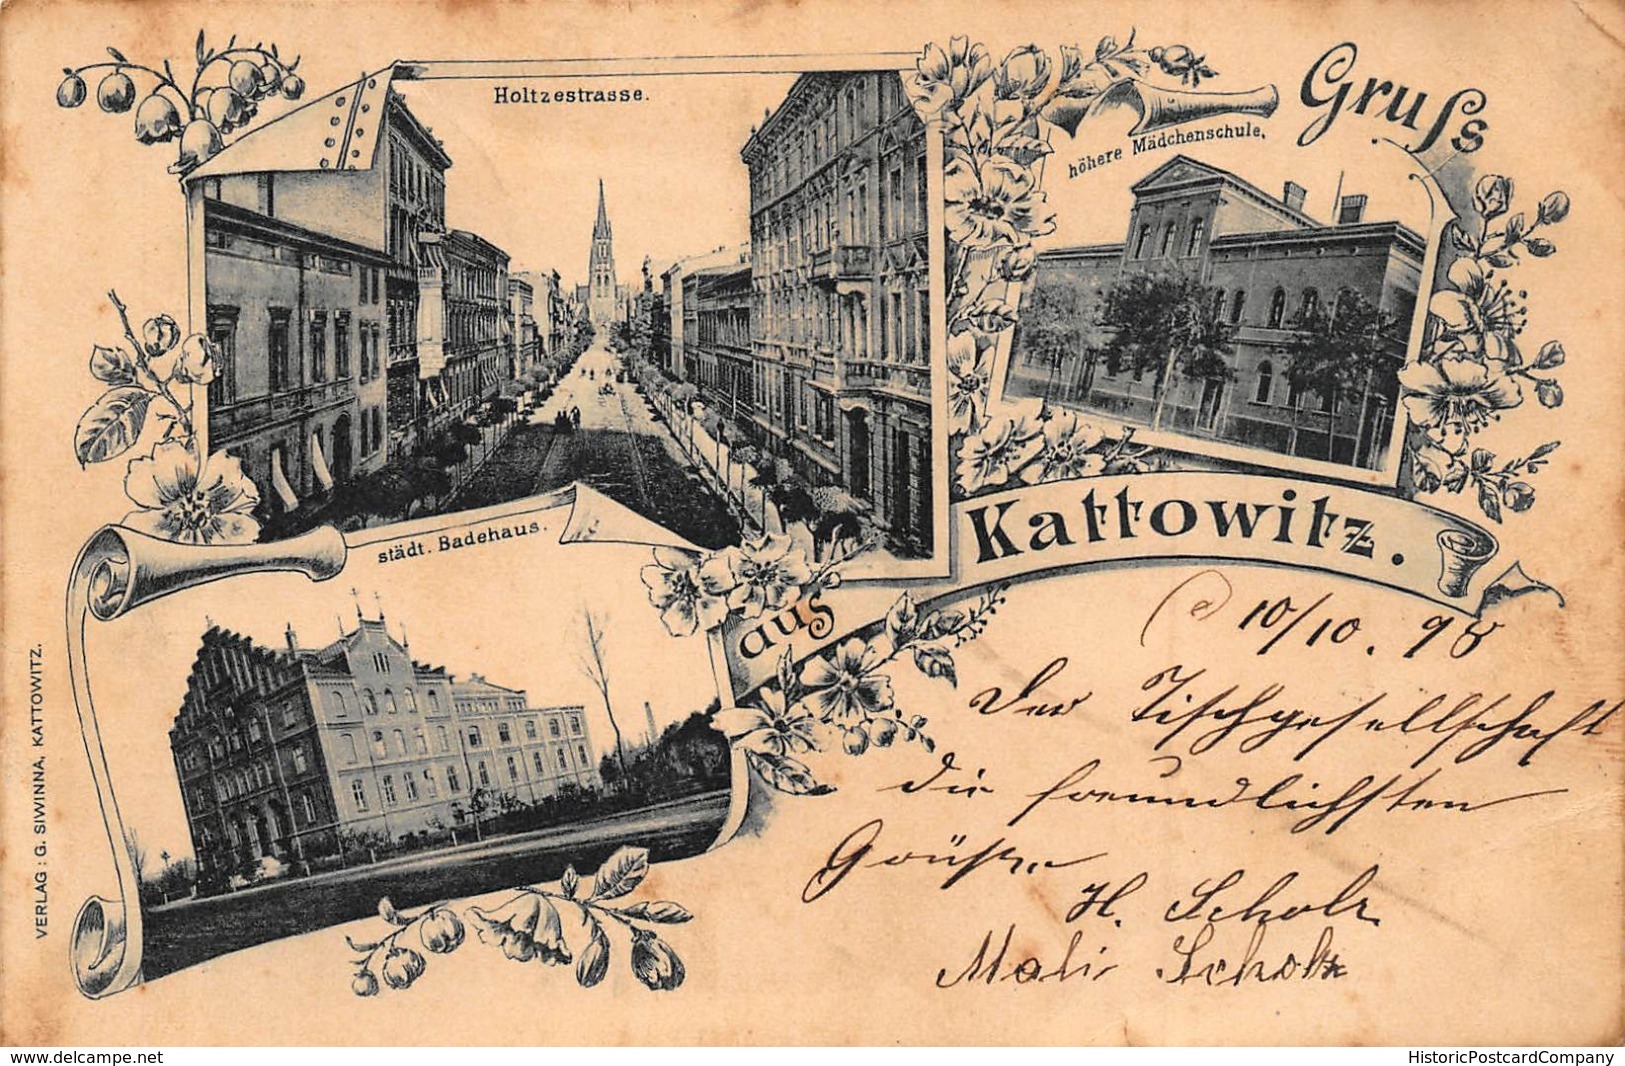 Gruſs
aus
Kattowitz.
Holtzestrasse.
höhere Mädchenschule,
städt. Badehaus.
VERLAG : G. SIWINNA, KATTOWITZ.
10/10. 98
Der Tischgesellschaft
die freundlichsten
Grüße
H. Scholz
Mali Scholz
www.delcampe.net
HistoricPostcardCompany